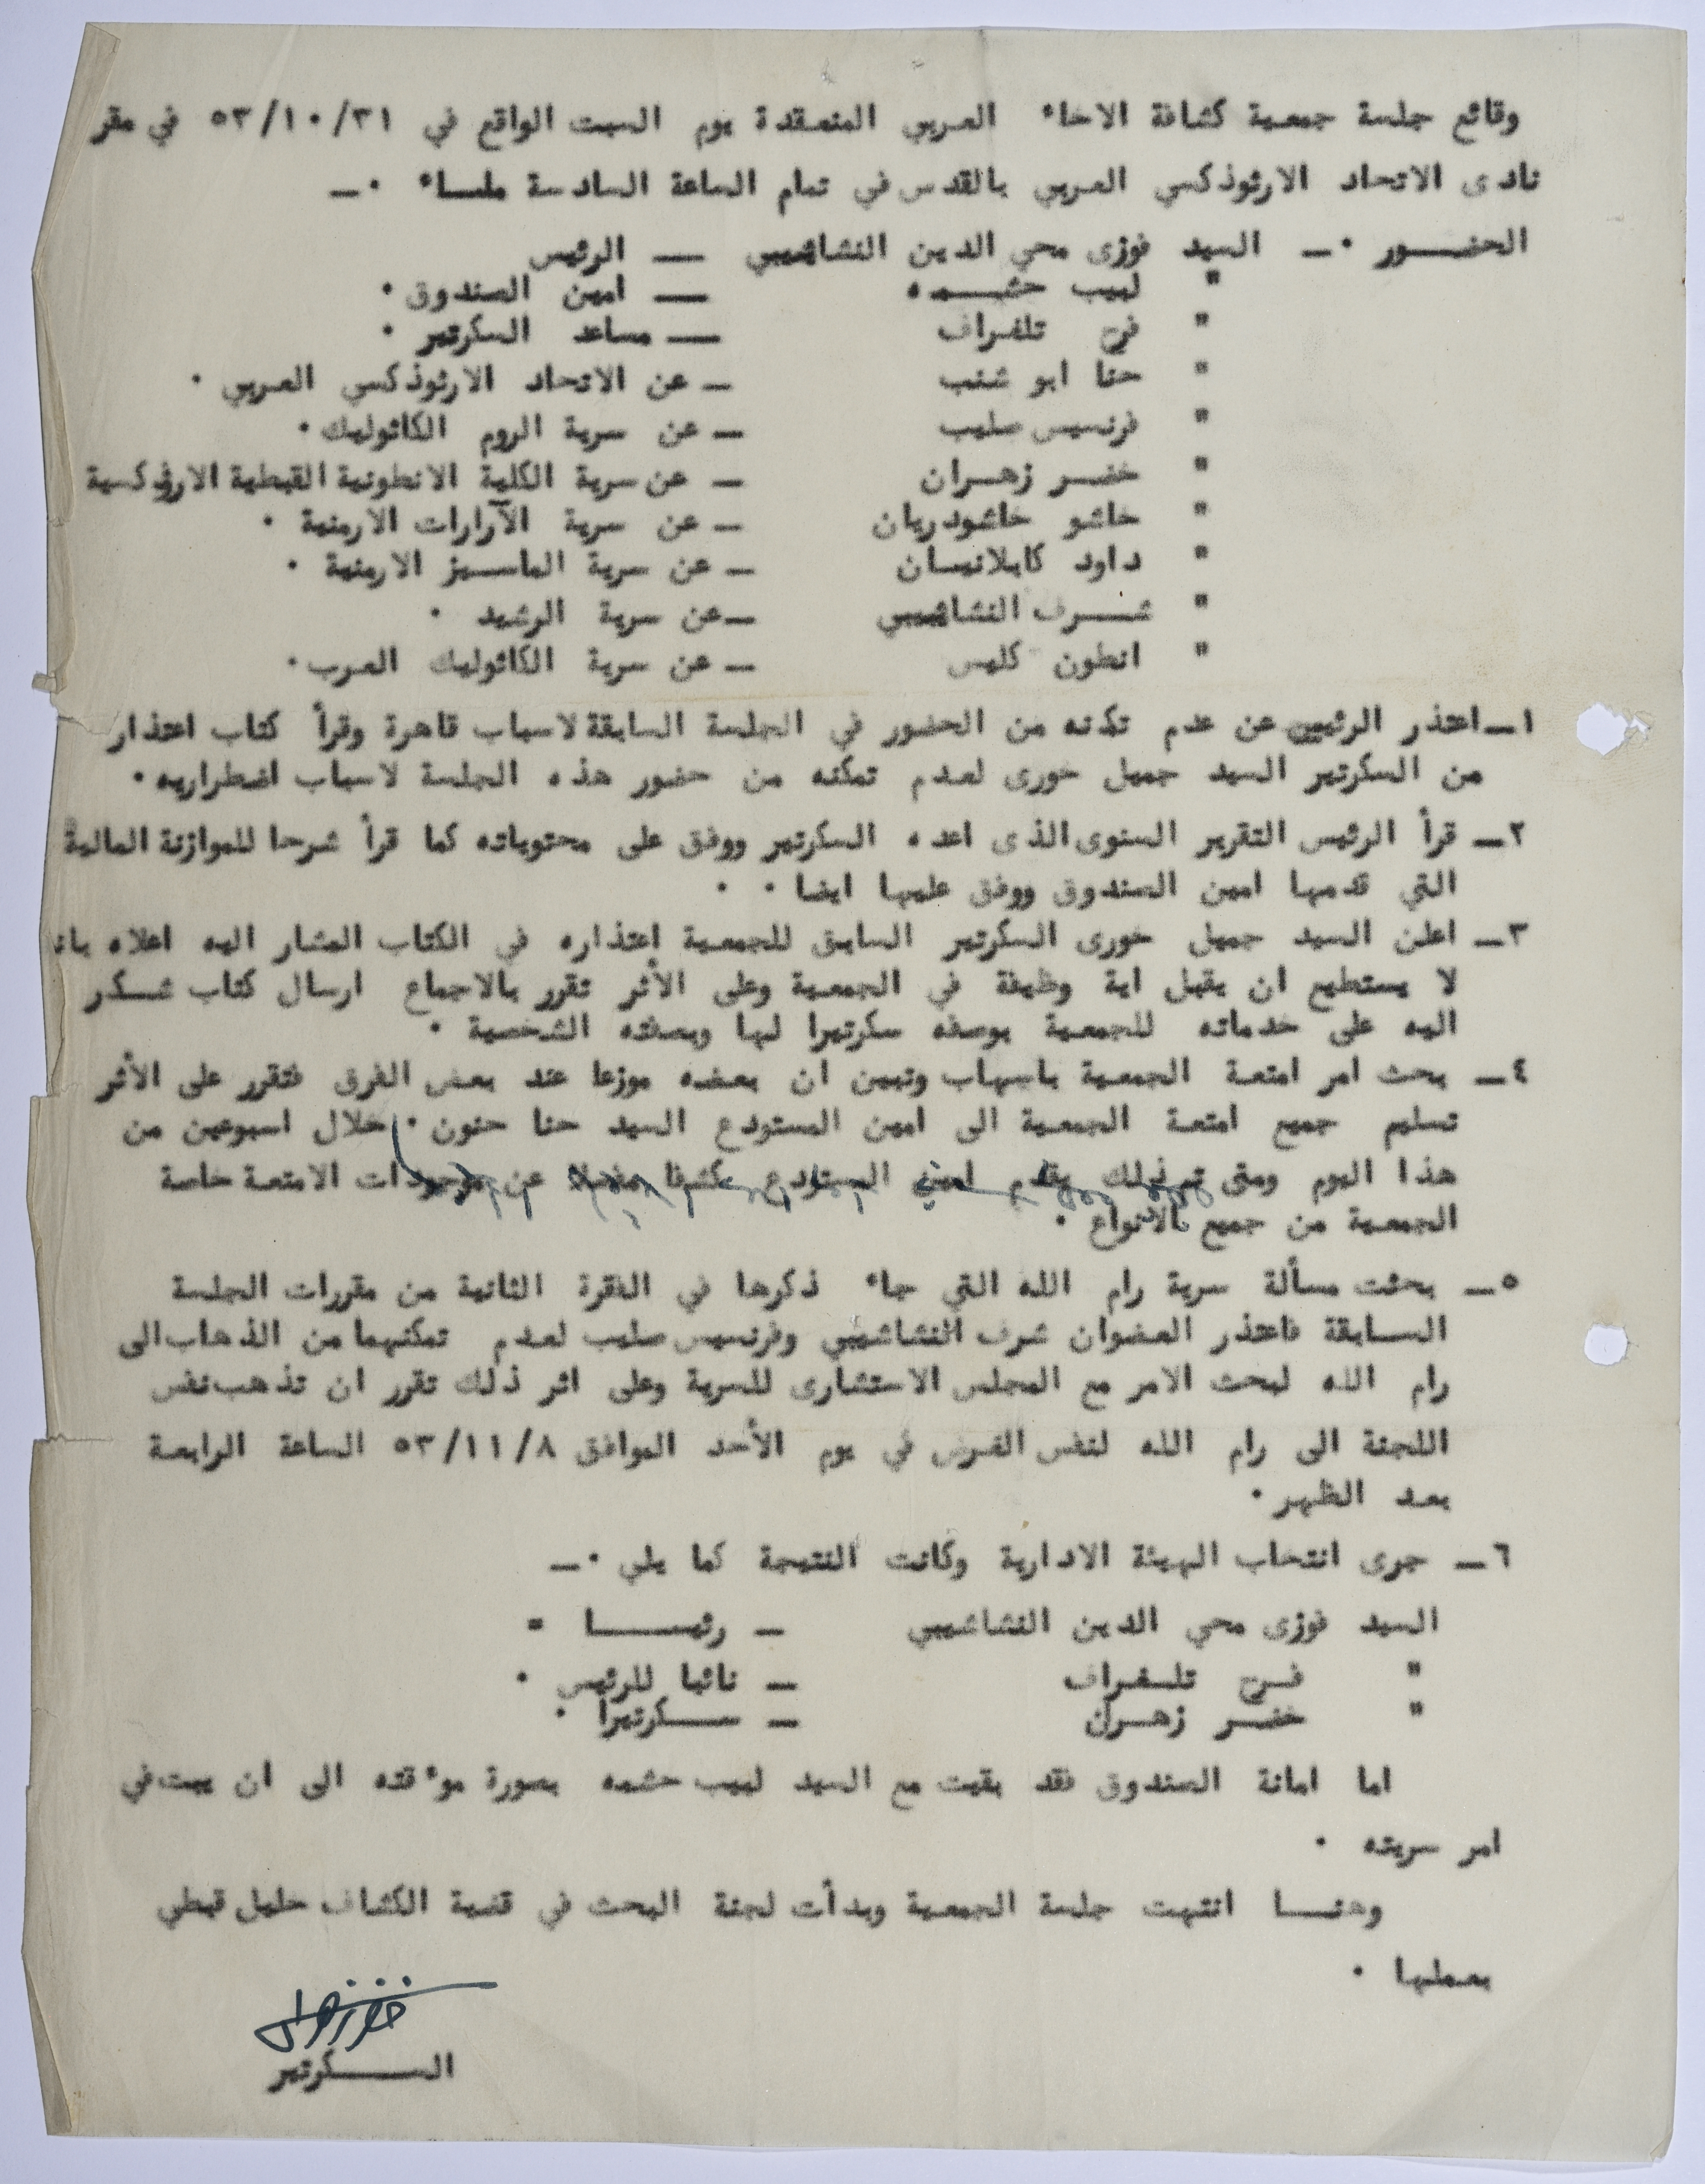 وقائع جلسة جمعية كشافة الاخاء العربي المنعقدة يوم السبت الواقع في ٥٣/١٠/٣١ في مقر
نادى الاتحاد الارثوذكسي العربي بالقدس في تمام الساعة السادسة مساء ٠ـ
الحضـــور ٠ـ السيد فوزى محي الدين النشاشيبي ـــ الرئيس
" لبيب حشـــمه ـــ امين الصندوق ٠
" فرح تلغراف ـــ مساعد السكرتير ٠
" حنا ابو شنب ـ عن الاتحاد الارثوذكسي العربي ٠
" فرنسيس صليب ـ عن سرية الروم الكاثوليك ٠
" خضـر زهـران ـ عن سرية الكلية الانطونية القبطية الارثوذكسية
" خاشو خاشودريان ـ عن سرية الآرارات الارمنية ٠
" داود كابلانيسان ـ عن سرية الماسـيز الارمنية ٠
" شــرف النشاشيبي ـ عن سرية الرشيد ٠
" انطون كليس ـ عن سرية الكاثوليك العرب ٠
١ـ اعتذر الرئيس عن عدم تمكنه من الحضور في الجلسة السابقة لاسباب قاهرة وقرأ كتاب اعتذار
من السكرتير السيد جميل خورى لعدم تمكنه من حضور هذه الجلسة لاسباب اضطراريه ٠
٢ـ قرأ الرئيس التقرير السنوى الذى اعده السكرتير ووفق على محتوياته كما قرأ شرحا للموازنة المالية
التي قدمها امين الصندوق ووفق عليها ايضا ٠ ٠
٣ـ اعلن السيد جميل خورى السكرتير السابق للجمعية اعتذاره في الكتاب المشار اليه اعلاه بانه
لا يستطيع ان يقبل اية وظيفة في الجمعية وعلى الأثر تقرر بالاجماع ارسال كتاب شــكر
اليه على خدماته للجمعية بوصفه سكرتيرا لها وبصفته الشخصية ٠
٤ـ بحث امر امتعة الجمعية باسهاب وتبين ان بعضه موزعا عند بعض الفرق فتقرر على الأثر
تسليم جميع امتعة الجمعية الى امين المستودع السيد حنا حنون ٠ خلال اسبوعين من
هذا اليوم ومتى تم ذلك يقدم امين المستودع كشفا مفصلا عن موجودات الامتعة خاصة
الجمعية من جميع الانواع ٠
٥ـ بحثت مسألة سرية رام الله التي جاء ذكرها في الفقرة الثانية من مقررات الجلسة
السـابقة فاعتذر العضوان شرف النشاشيبي وفرنسيس صليب لعدم تمكنهما من الذهاب الى
رام الله لبحث الامر مع المجلس الاستشارى للسرية وعلى اثر ذلك تقرر ان تذهب نفس
اللجنة الى رام الله لنفس الغرض في يوم الأحد الموافق ٥٣/١١/٨ الساعة الرابعة
بعد الظهر ٠
٦ـ جرى انتخاب الهيئة الادارية وكانت النتيجة كما يلي ٠ـ
السيد فوزى محي الدين النشاشيبي ـ رئيســـا =
" فـرح تلــغراف ـ نائبا للرئيس ٠
" خضـر زهـران ـ ســكرتيرا ٠
اما امانة الصندوق فقد بقيت مع السيد لبيب حشمه بصورة موءقته الى ان يبت في
امر سريته ٠
وهنــا انتهت جلسة الجمعية وبدأت لجنة البحث في قضية الكشاف خليل قبطي
بعملها ٠
خضر زهران
الســـكرتير